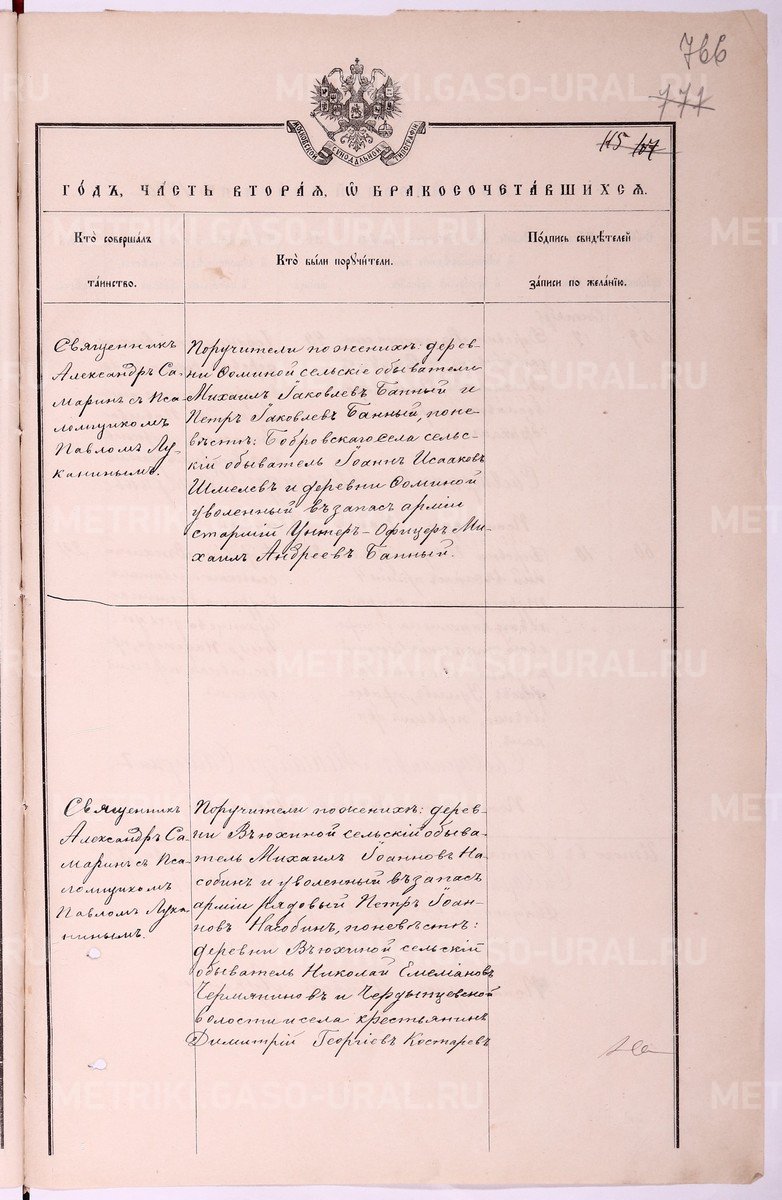 766
771
МОСКОВСКОЙ СѴНОДАЛЬНОЙ ТИПОГРАФІИ
115 107
ГО́ДЪ, ЧА́СТЬ ВТОРА́Я, Ѡ БРАКОСОЧЕТА́ВШИХСЯ.
Кто̀ соверша́лъ
та́инство.
Кто̀ бы́ли пору́чи́тели.
По́дпись свидѣ́телей
за́писи по жела́нію.
Священникъ
Александръ Са-
маринъ съ Пса-
ломщикомъ
Павломъ Лу-
канинымъ.
Поручители по женихѣ: дерев-
ни Ѳоминой сельскіе обыватели
Михаилъ Іаковлевъ Банный и
Петръ Іаковлевъ Банный, по не-
вѣстѣ: Бобровскаго села сель-
скій обыватель Іоаннъ Исааковъ
Шмелевъ и деревни Ѳоминой
уволенный въ запасъ арміи
старшій Унтеръ-Офицеръ Ми-
хаилъ Андреевъ Банный.
Священникъ
Александръ Са-
маринъ съ Пса-
ломщикомъ
Павломъ Лука-
нинымъ.
Поручители по женихѣ: дерев-
ни Вьюхиной сельскій обыва-
тель Михаилъ Іоанновъ На-
собинъ и уволенный въ запасъ
арміи рядовый Петръ Іоан-
новъ Насобинъ, по невѣстѣ:
деревни Вьюхиной сельскій
обыватель Николай Емеліановъ
Чермяниновъ и Чердынцевской
волости и села крестьянинъ
Димитрій Георгіевъ Костаревъ
METRIKI.GASO-URAL.RU